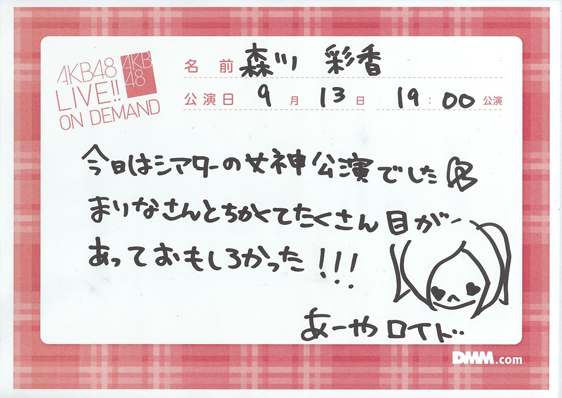 AKB48
LIVE!!
ON DEMAND
AKB
48
名前 森川 彩香
公演日 9月 13日 19:00 公演
今日はシアターの女神公演でした
まりなさんとちかくてたくさん目が
あっておもしろかった!!!
あーやロイド
DMM.com